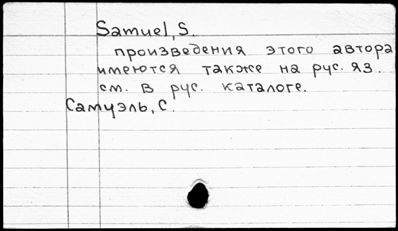 Samuel, S.
произведения этого автора
имеются также на рус. яз.
см. в рус. каталоге.
Самуэль, С.